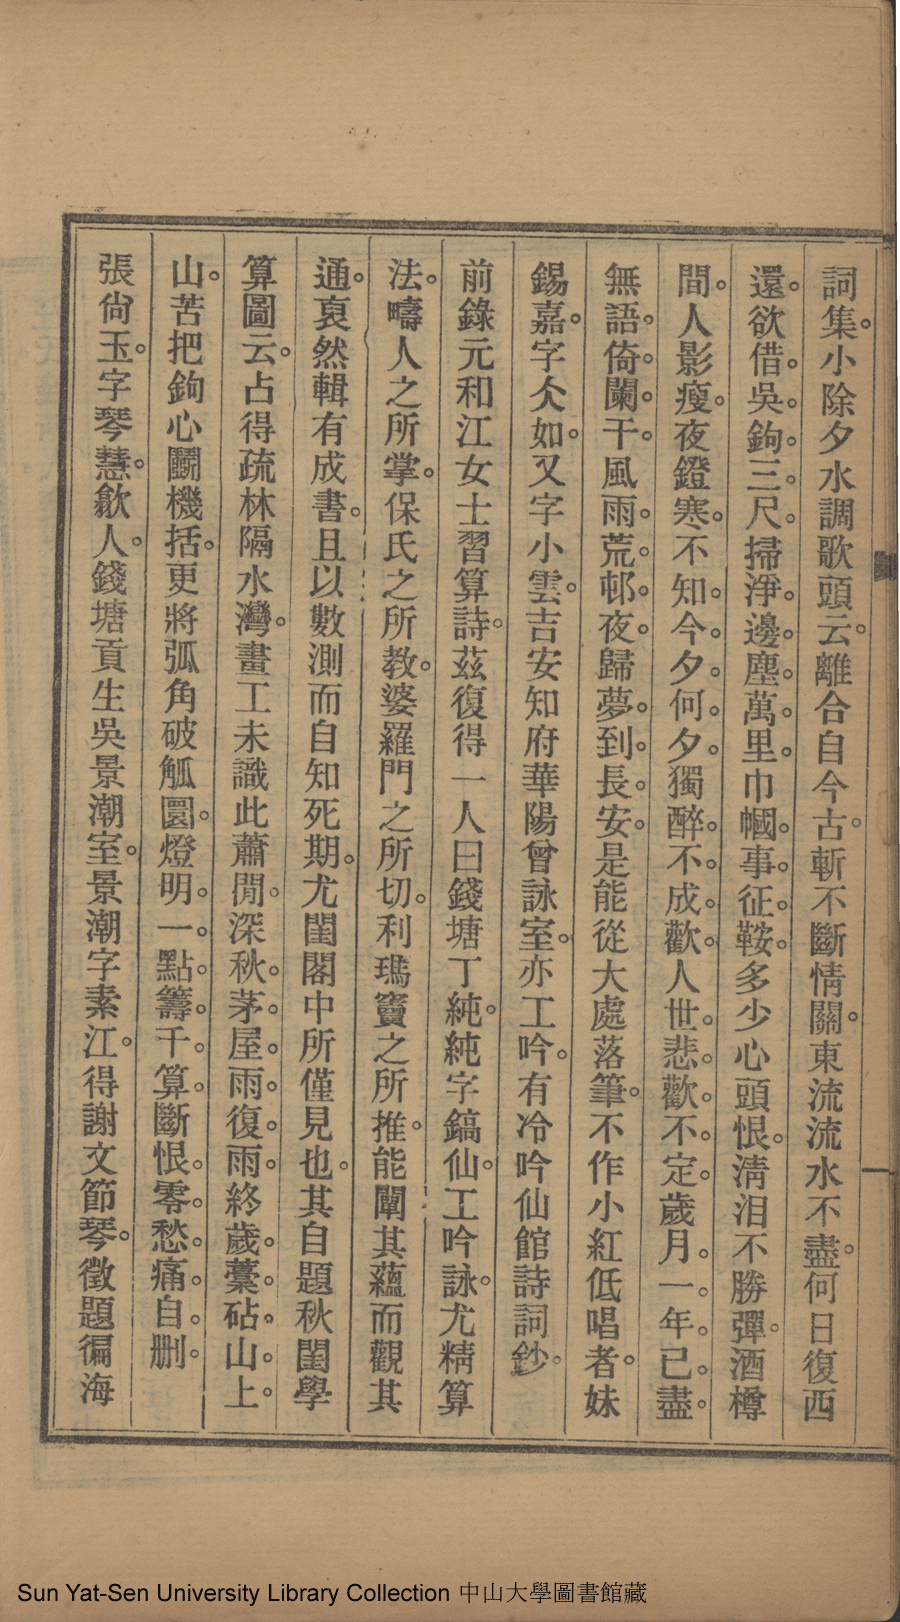 詞集。小除夕水調歌頭云。離合自今古。斬不斷情關。東流流水不盡。何日復西
還。欲借。吳。鉤。三。尺。掃淨。邊。塵。萬。里。巾幗。事。征。鞍。多少心頭恨。淸泪不勝彈。酒樽
間。人影瘦。夜鐙寒。不知。今。夕。何。夕。獨醉。不。成。歡。人世。悲。歡。不。定。歲月。一。年。已。盡。
無語。倚。闌。干。風雨。荒。邨。夜。歸夢。到。長。安。是能從大處落筆。不作小紅低唱者。妹
錫嘉。字仌如。又字小雲。吉安知府華陽曾詠室。亦工吟。有冷吟仙館詩詞鈔。
前錄元和江女士習算詩。茲復得一人曰錢塘丁純。純字鎬仙。工吟詠。尤精算
法。疇人之所掌。保氏之所教。婆羅門之所切。利瑪竇之所推。能闡其蘊而觀其
通。裒然輯有成書。且以數測而自知死期。尤閨閣中所僅見也。其自題秋閨學
算圖云。占得疏林隔水灣。畫工未識此蕭閒。深秋。茅。屋。雨。復。雨。終歲。藁。砧。山。上。
山。苦把鉤心鬭機括。更將弧角破觚圜。燈明。一。點。籌。千。算。斷恨。零。愁。痛。自。删。
張尙玉。字琴慧。歙人。錢塘貢生吳景潮室。景潮字素江。得謝文節琴。徵題徧海
Sun Yat-Sen University Library Collection 中山大學圖書館藏